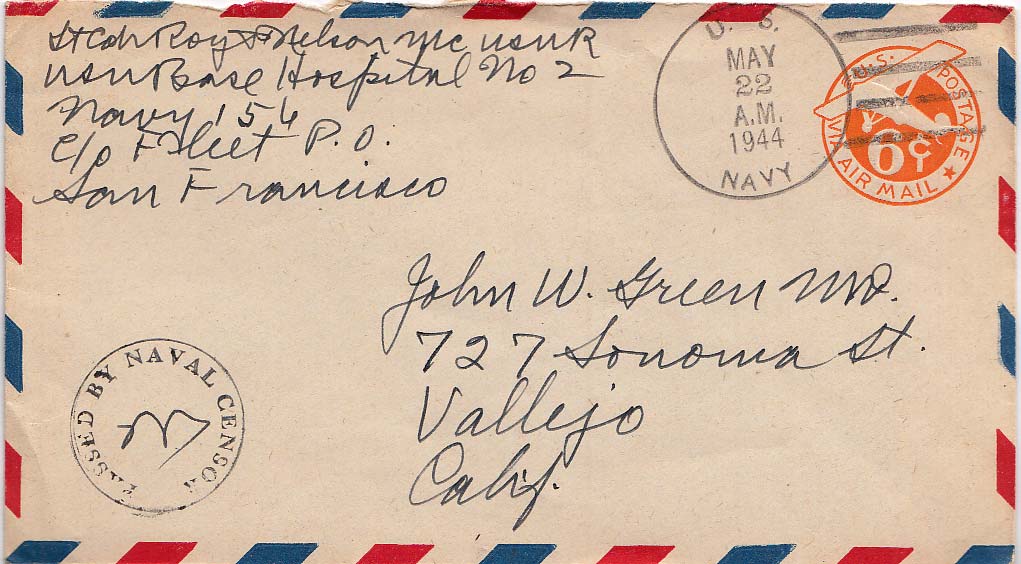 Lt Cdr Roy F Nelson MC USNR
USN Base Hospital No 2
Navy 154
c/o Fleet P.O.
San Francisco
U. S.
MAY
22
A.M.
1944
NAVY
U.S. POSTAGE
6¢
VIA AIR MAIL
John W. Green MD.
727 Sonoma St.
Vallejo
Calif.
PASSED BY NAVAL CENSOR